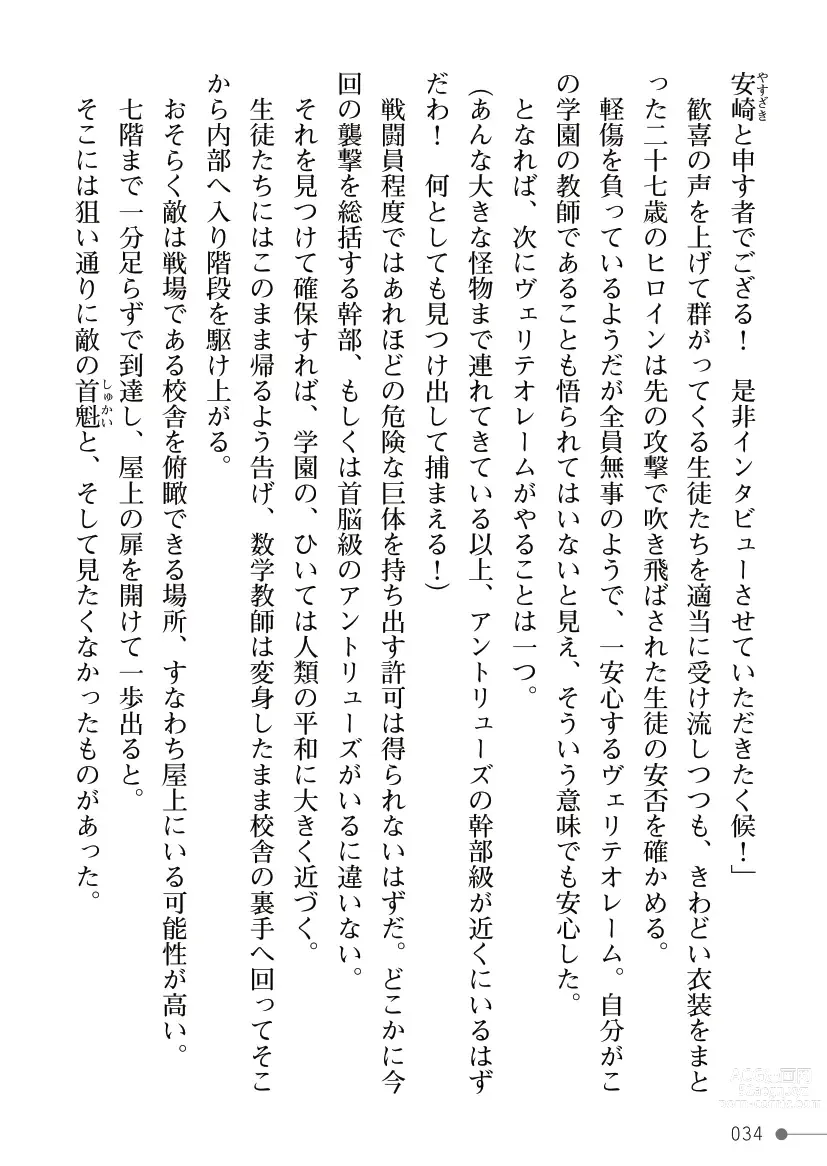 安崎と申す者でござる！　是非インタビューさせていただきたく候！」
やすざき
　歓喜の声を上げて群がってくる生徒たちを適当に受け流しつつも、きわどい衣装をまと
った二十七歳のヒロインは先の攻撃で吹き飛ばされた生徒の安否を確かめる。
　軽傷を負っているようだが全員無事のようで、一安心するヴェリテオレーム。自分がこ
の学園の教師であることも悟られてはいないと見え、そういう意味でも安心した。
　となれば、次にヴェリテオレームがやることは一つ。
（あんな大きな怪物まで連れてきている以上、アントリューズの幹部級が近くにいるはず
だわ！　何としても見つけ出して捕まえる！）
　戦闘員程度ではあれほどの危険な巨体を持ち出す許可は得られないはずだ。どこかに今
回の襲撃を総括する幹部、もしくは首脳級のアントリューズがいるに違いない。
　それを見つけて確保すれば、学園の、ひいては人類の平和に大きく近づく。
　生徒たちにはこのまま帰るよう告げ、数学教師は変身したまま校舎の裏手へ回ってそこ
から内部へ入り階段を駆け上がる。
　おそらく敵は戦場である校舎を俯瞰できる場所、すなわち屋上にいる可能性が高い。
　七階まで一分足らずで到達し、屋上の扉を開けて一歩出ると。
　そこには狙い通りに敵の首魁と、そして見たくなかったものがあった。
しゅかい
034